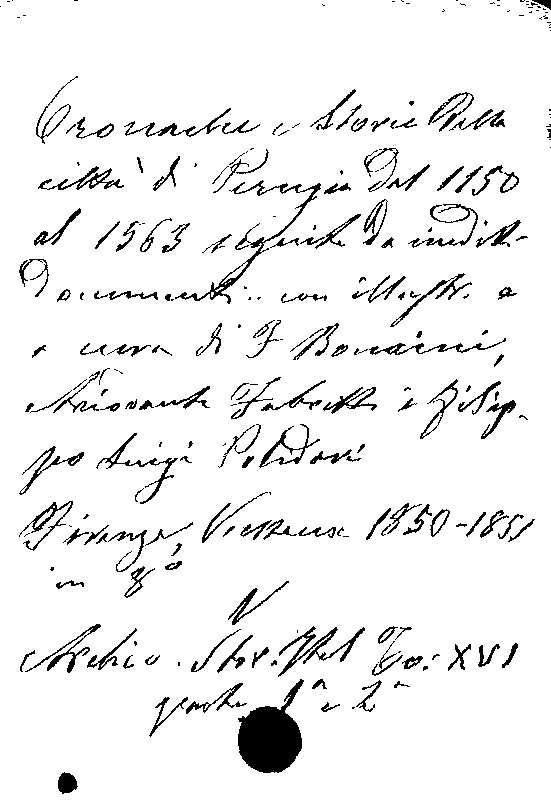 Cronache e Storie della
città di Perugia dal 1150
al 1563 seguite da inediti
Documenti .. con illustr. a
cura di F Bonaini,
Ariodante Fabretti e Filip-
po Luigi Polidori
Firenze, Vieusseux 1850-1851
in 8°
V
Archiv. Stor. Ital To: XVI
parte 1ª e 2ª